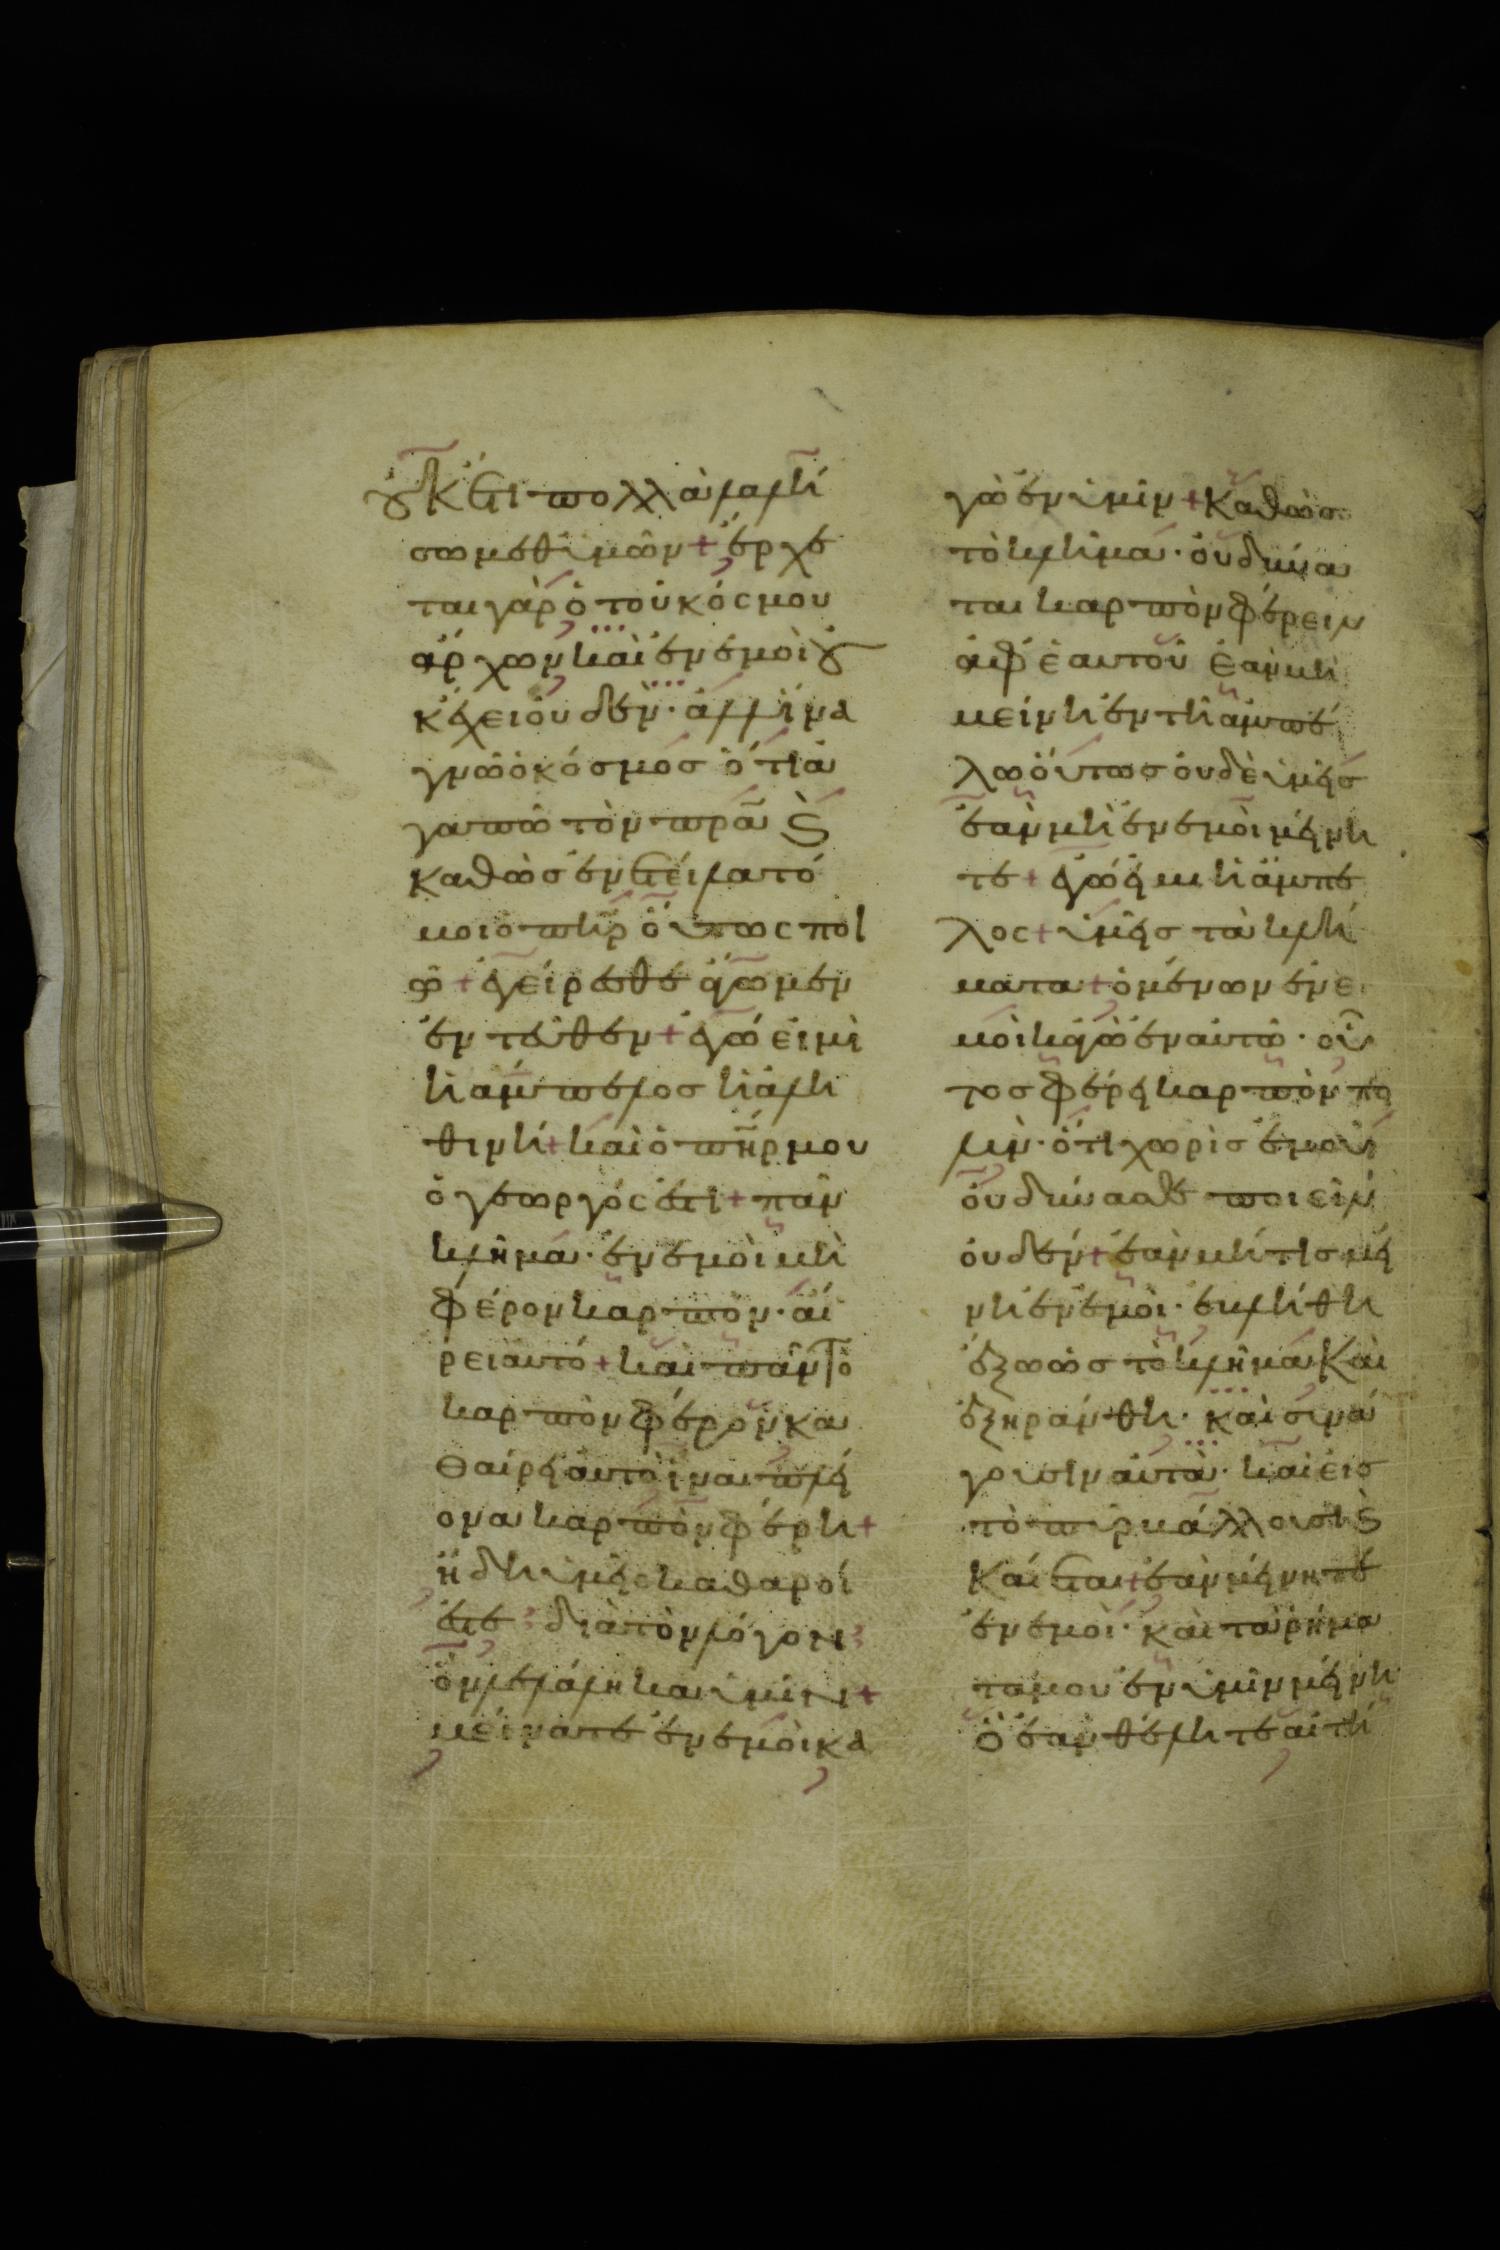 οὐκέτι πολλὰ λαλή
σω μεθ ὑμῶν + ἔρχε
ται γὰρ ὁ τοῦ κόσμου
ἄρχων καὶ ἐν ἐμοὶ οὐ
κ ἔχει οὐδέν · ἀλλ ἵνα
γνῶ ὁ κόσμος ὅτι ἀ
γαπῶ τὸν πρα ϗ
καθὼς ἐνετείλατό
μοι ὁ πηρ οὕτως ποι
ῶ + ἐγείρεσθε ἄγωμεν
ἐντεῦθεν + ἐγώ εἰμι
ἡ ἄμπελος ἡ ἀλη
θινή + καὶ ὁ πηρ μου
ὁ γεωργός ἐστι + πᾶν
κλῆμα · ἐν ἐμοὶ μὴ
φέρον καρπὸν · αἴ
ρει αὐτό + καὶ πᾶν τὸ
καρπὸν φέρον κα
θαίρει αὐτὸ ἵνα πλεί
ονα καρπὸν φέρη +
ἤδη ὑμεῖς καθαροί
ἐστε διὰ τὸν λόγον
ὃν λελάληκα ὑμῖν +
μείνατε ἐν ἐμοὶ κα
γὼ ἐν ὑμῖν + καθὼς
τὸ κλῆμα · οὐ δύνα
ται καρπὸν φέρειν
ἀφ ἑαυτοῦ ἐὰν μὴ
μείνη ἐν τῆ ἀμπέ
λω οὕτως οὐδὲ ὑμεῖς
ἐὰν μὴ ἐν ἐμοὶ μείνη
τε + ἐγώ εἰμι ἡ ἄμπε
λος + ὑμεῖς τὰ κλή
ματα + ὁ μένων ἐν ἐ
μοὶ καγὼ ἐν αὐτῶ · οὗ
τος φέρει καρπὸν πο
λὺν · ὅτι χωρὶς ἐμοῦ
οὐ δύνασθε ποιεῖν
οὐδέν + ἐὰν μή τις μεί
νη ἐν ἐμοὶ · ἐκλήθη
ἔξω ὡς τὸ κλῆμα καὶ
ἐξηράνθη · καὶ συνά
γουσιν αὐτὰ · καὶ εἰς
τὸ πῦρ βάλλουσι ϗ
καίεται + ἐὰν μείνητε
ἐν ἐμοὶ · καὶ τὰ ῥήμα
τα μου ἐν ὑμῖν μείνη
ὃ ἐὰν θέλητε αἰτή